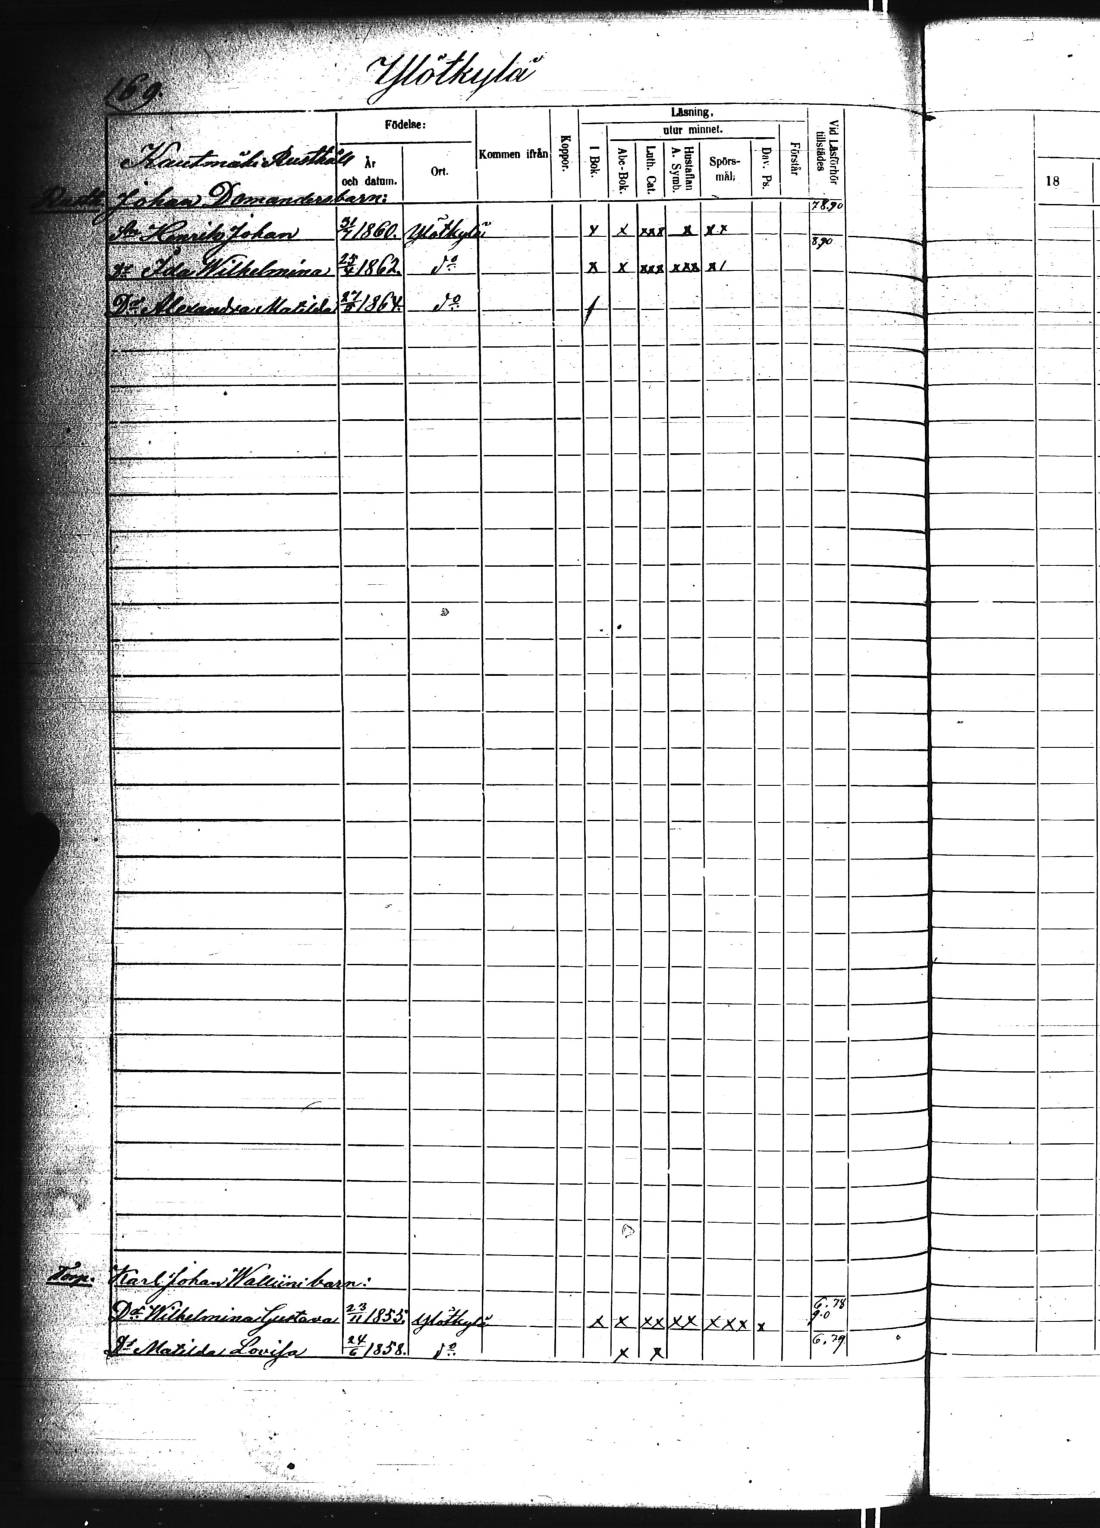 169.
Ylötkylä
Födelse:
Kommen ifrån
Koppor.
Läsning,
utur minnet.
I Bok.
Abc-Bok.
Luth. Cat.
Hustaflan A. Symb.
Spörs-mål.
Dav. Ps.
Förstår
Vid Läsförhör tillstädes
18
År och datum.
Ort.
Kautmäki Rusthåll
Johan Domanders barn:
78.90
Sn Henrik Johan 31/7 1860. Ylötkylä x x xxx x xx
8,90
Dr Ida Wilhelmina 1862. do x x xxx xxx x/
Dr Alexandra Matilda 1864. do /
Torp. Karl Johan Walliini barn:
6.78
9.0
Dr Wilhelmina Gustava 23/11 1855. Ylötkylä x x xx xx xxx x
6.79
Dr Matilda Lovisa 24/6 1858. do x x